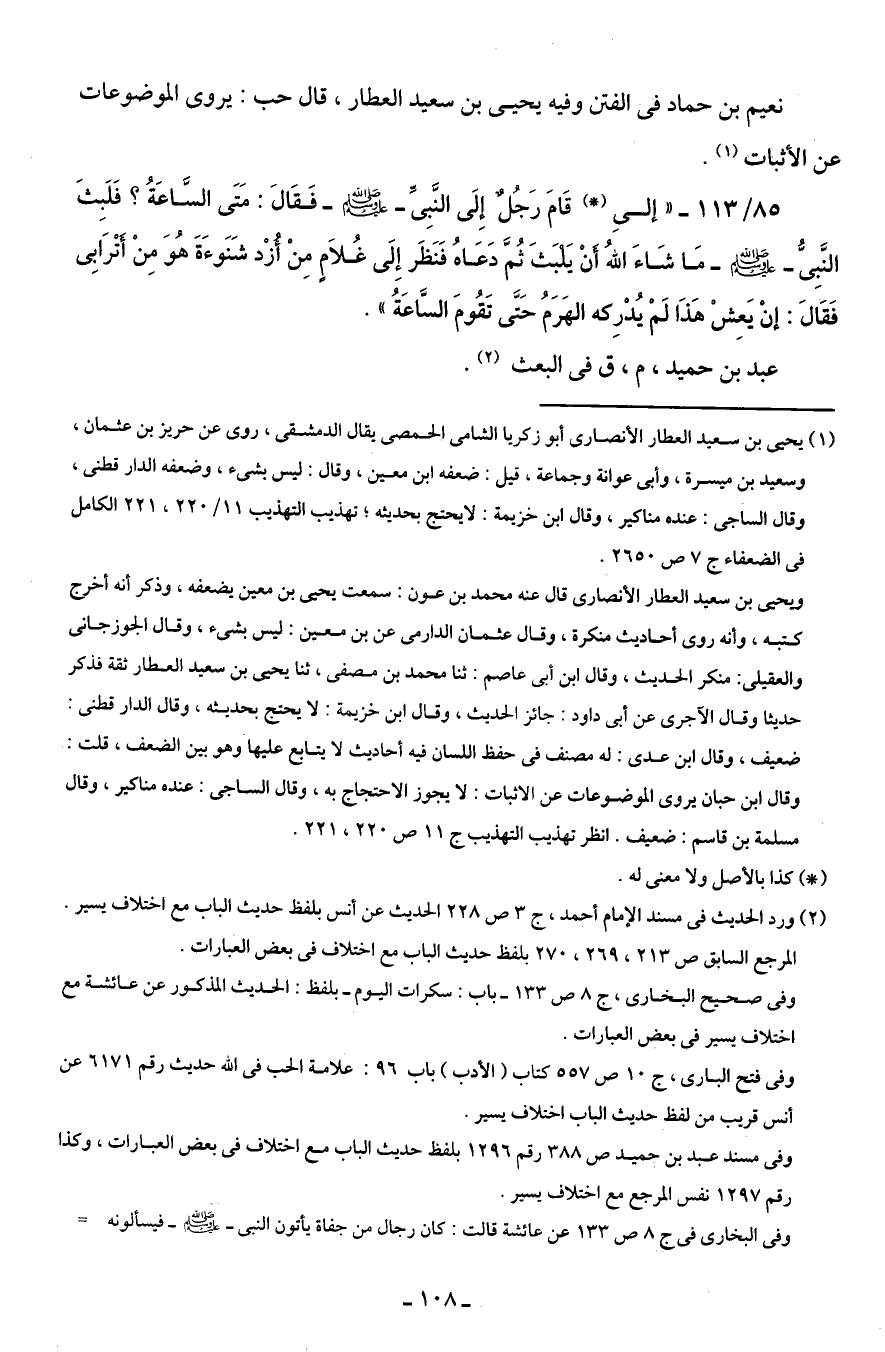 نعيم بن حماد فى الفتن وفيه يحيى بن سعيد العطار ، قال حب : يروى الموضوعات
عن الأثبات (١) .
١١٣/٨٥ ـ « إلى (*) قَامَ رَجُلٌ إِلَى النَّبِىِّ ـ ﷺ ـ فَقَالَ : مَتَى السَّاعَةُ ؟ فَلَبِثَ
النَّبِىُّ ـ ﷺ ـ مَا شَاءَ اللهُ أَنْ يَلْبَثَ ثُمَّ دَعَاهُ فَنَظَرَ إِلَى غُلَامٍ مِنْ أَزْد شَنَوءَةَ هُوَ مِنْ أَتْرَابِى
فَقَالَ : إِنْ يَعِشْ هَذَا لَمْ يُدْرِكه الهَرَمُ حَتَّى تَقُومَ السَّاعَةُ » .
عبد بن حميد ، م ، ق فى البعث (٢) .
(١) يحيى بن سعيد العطار الأنصارى أبو زكريا الشامى الحمصى يقال الدمشقى ، روى عن حريز بن عثمان ،
وسعيد بن ميسرة ، وأبى عوانة وجماعة ، قيل : ضعفه ابن معين ، وقال : ليس بشىء ، وضعفه الدار قطنى ،
وقال الساجى : عنده مناكير ، وقال ابن خزيمة : لايحتج بحديثه ؛ تهذيب التهذيب ١١/ ٢٢٠ ، ٢٢١ الكامل
فى الضعفاء ج ٧ ص ٢٦٥٠ .
ويحيى بن سعيد العطار الأنصارى قال عنه محمد بن عون : سمعت يحيى بن معين يضعفه ، وذكر أنه أخرج
كتبه ، وأنه روى أحاديث منكرة ، وقال عثمان الدارمى عن بن معين : ليس بشىء ، وقال الجوزجانى
والعقيلى: منكر الحديث ، وقال ابن أبى عاصم : ثنا محمد بن مصفى ، ثنا يحيى بن سعيد العطار ثقة فذكر
حديثا وقال الآجرى عن أبى داود : جائز الحديث ، وقال ابن خزيمة : لا يحتج بحديثه ، وقال الدار قطنى :
ضعيف ، وقال ابن عدى : له مصنف فى حفظ اللسان فيه أحاديث لا يتابع عليها وهو بين الضعف ، قلت :
وقال ابن حبان يروى الموضوعات عن الاثبات : لا يجوز الاحتجاج به ، وقال الساجى : عنده مناكير ، وقال
مسلمة بن قاسم : ضعيف . انظر تهذيب التهذيب ج ١١ ص ٢٢٠ ، ٢٢١ .
(*) كذا بالأصل ولا معنى له .
(٢) ورد الحديث فى مسند الإمام أحمد ، ج ٣ ص ٢٢٨ الحديث عن أنس بلفظ حديث الباب مع اختلاف يسير .
المرجع السابق ص ٢١٣ ، ٢٦٩ ، ٢٧٠ بلفظ حديث الباب مع اختلاف فى بعض العبارات .
وفى صحيح البخارى ، ج ٨ ص ١٣٣ ـ باب : سكرات اليوم ـ بلفظ : الحديث المذكور عن عائشة مع
اختلاف يسير فى بعض العبارات .
وفى فتح البارى ، ج ١٠ ص ٥٥٧ كتاب ( الأدب ) باب ٩٦ : علامة الحب فى الله حديث رقم ٦١٧١ عن
أنس قريب من لفظ حديث الباب اختلاف يسير .
وفى مسند عبد بن حميد ص ٣٨٨ رقم ١٢٩٦ بلفظ حديث الباب مع اختلاف فى بعض العبارات ، وكذا
رقم ١٢٩٧ نفس المرجع مع اختلاف يسير .
وفى البخارى فى ج ٨ ص ١٣٣ عن عائشة قالت : كان رجال من جفاة يأتون النبى ـ ﷺ ـ فيسألونه =
ـ ١٠٨ ـ